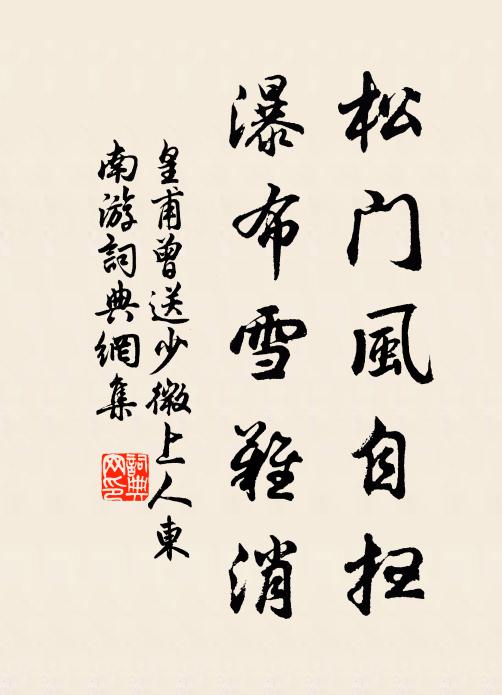 松门風自扫
瀑布雪難消
皇甫曾送少微上人東
南游詞典網集
詞典
网印